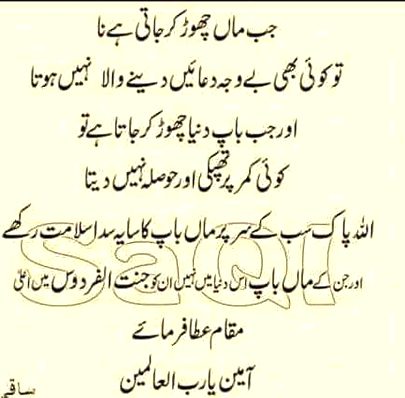 جب ماں چھوڑ کر جاتی ہے نا
تو کوئی بھی بے وجہ دعائیں دینے والا نہیں ہوتا
اور جب باپ دنیا چھوڑ کر جاتا ہے تو
کوئی کمر پر تھپکی اور حوصلہ نہیں دیتا
اللہ پاک سب کے سر پر ماں باپ کا سایہ سدا سلامت رکھے
اور جن کے ماں باپ اس دنیا میں نہیں ان کو جنت الفردوس میں اعلیٰ
مقام عطا فرمائے
آمین یا رب العالمین
ساقی
SaQI